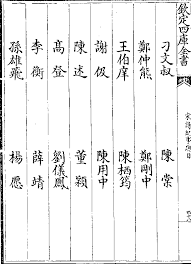 欽定四庫全書
刁文叔 陳棠
鄭仲熊 鄭剛中
王伯庠 陳栖筠
謝伋 陳用中
陳述 董穎
高登 劉儀鳳
李衡 薛靖
孫雄飛 楊愿